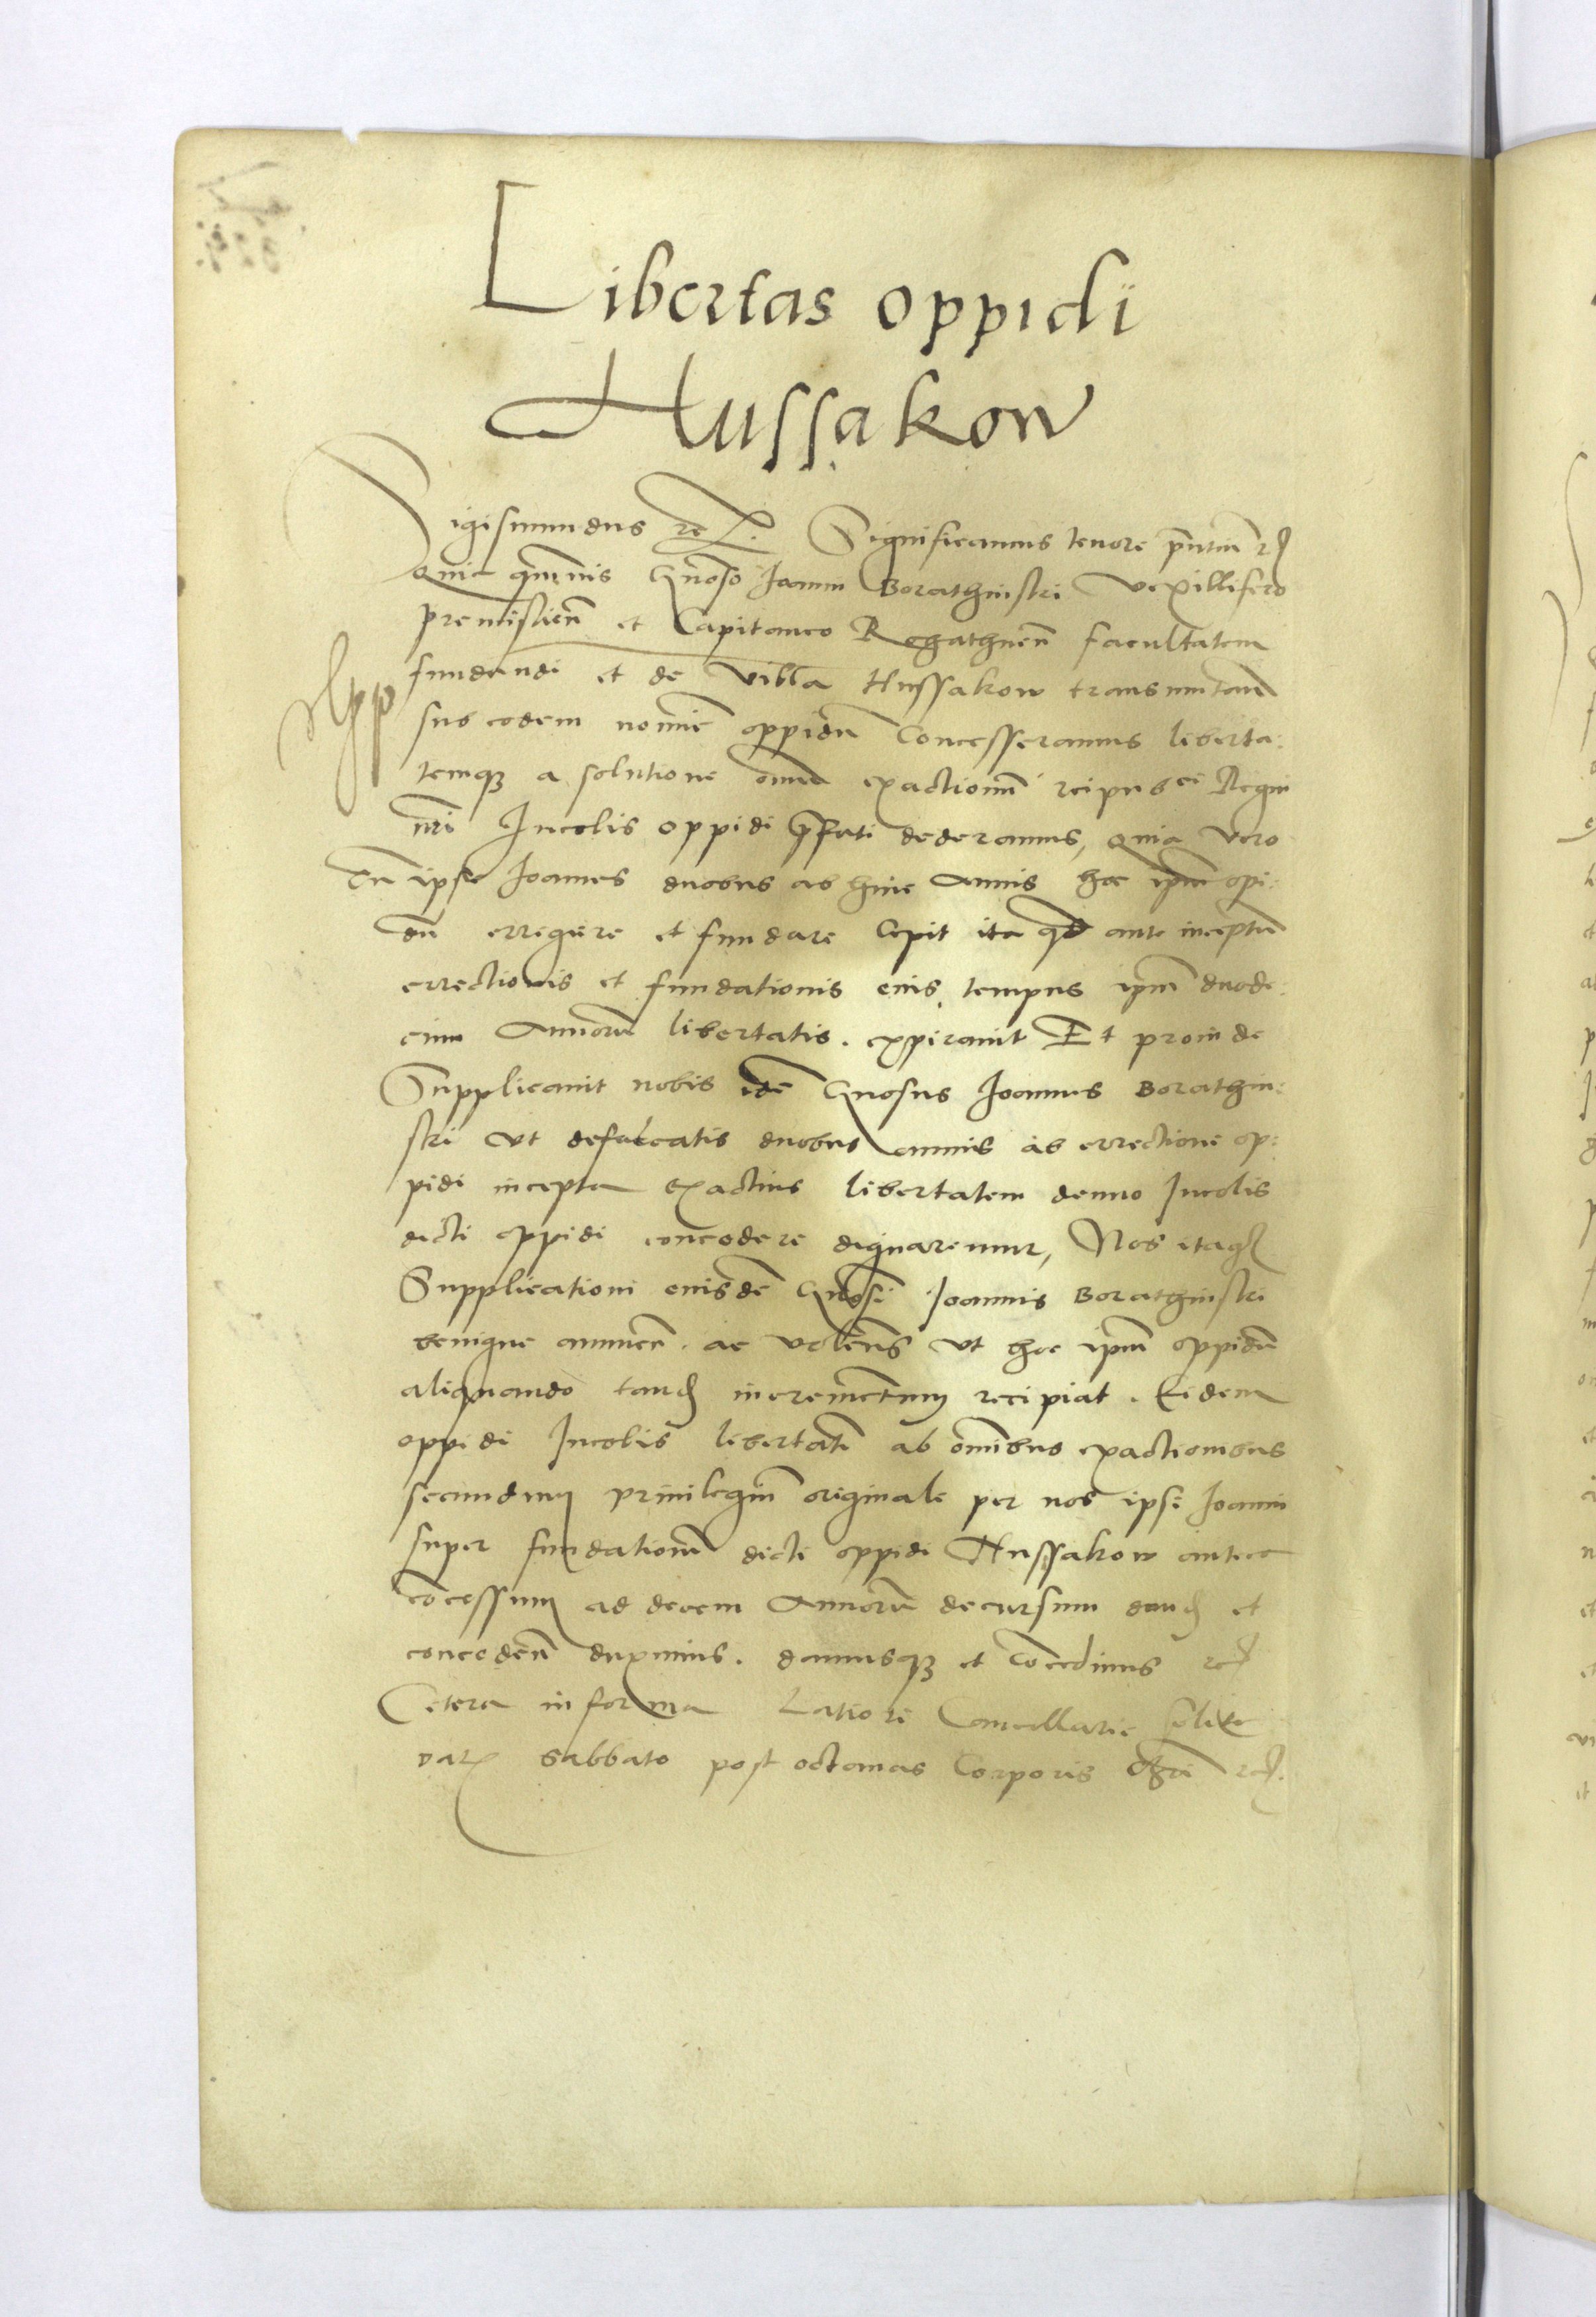 Libertas oppidi
Hussakow
Sigismundus etc. Significamus tenore pñtium etc
Quia qm̃vis Gñoso Ioanni Borathinski Vexillifero
premislień et Capitaneo Rohathneñ facultatem
fundandi et de villa Hussakow transmutand
sub eodem nomine oppidũ Concesseramus liberta:
temqꝫ a solutione omĩũ exactionũ reipub ce Regni
nr̃i Incolis oppidi p̃fati dederamus, quia vero
dũ ipse Ioannes duobus ab hinc Annis hoc ipm̃ opi:
dũ erregere et fundare Cepit ita qd ante inceptũ
errectionis et fundationis eius tempus ipm̃ duode:
cim Annorũ libertatis. expiravit Et proinde
Supplicavit nobis idẽ Gnosus Ioannes Borathin:
ski Vt defalcatis duobus annis ab errectione op:
pidi incepta exactius libertatem denuo Incolis
dicti oppidi concedere dignaremur, Nos itaqꝫ
Supplicationi eiusdẽ Gñosi Ioannis Borathinski
benigne annueñ. ac volentes Vt hoc ipm̃ oppidũ
aliquando tand incrementum recipiat. Eidem
oppidi Incolis libertatẽ ab om̃ibus exactionibus
secundum privilegiũ originale per nos ipsi Ioanni
super fundationẽ dicti oppidi Hussakow antea
cõcessum ad decem Annorũ decursum dand et
concedeñ duximus. damusqꝫ et Cõcedimus etc
Cetera in forma Latiori Cancellarie solite
Dat Sabbato post octavas Corporis Chri etc.